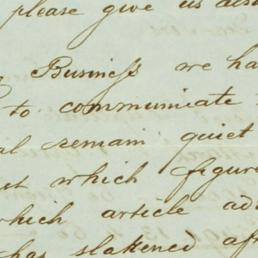 please give us
Business we ha
to communicate
al remain quiet
which figur
which article ad
has slakened af